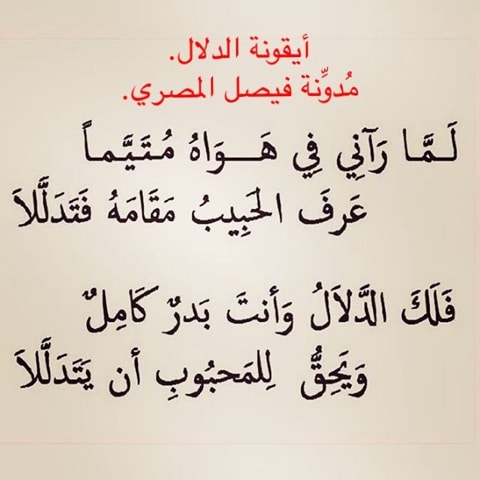 أيقونة الدلال.
مُدوِّنة فيصل المصري.
لَـمَّـا رَآنِي فِي هَـــوَاهُ مُـتَـيَّـمـاً
عَرفَ الحَبِيبُ مَقَامَهُ فَتَدلَّلاَ
فَلَكَ الدَّلاَلُ وَأنتَ بَدرٌ كَامِلٌ
وَيَحِقُّ لِلمَحبُوبِ أن يَتَدَلَّلاَ